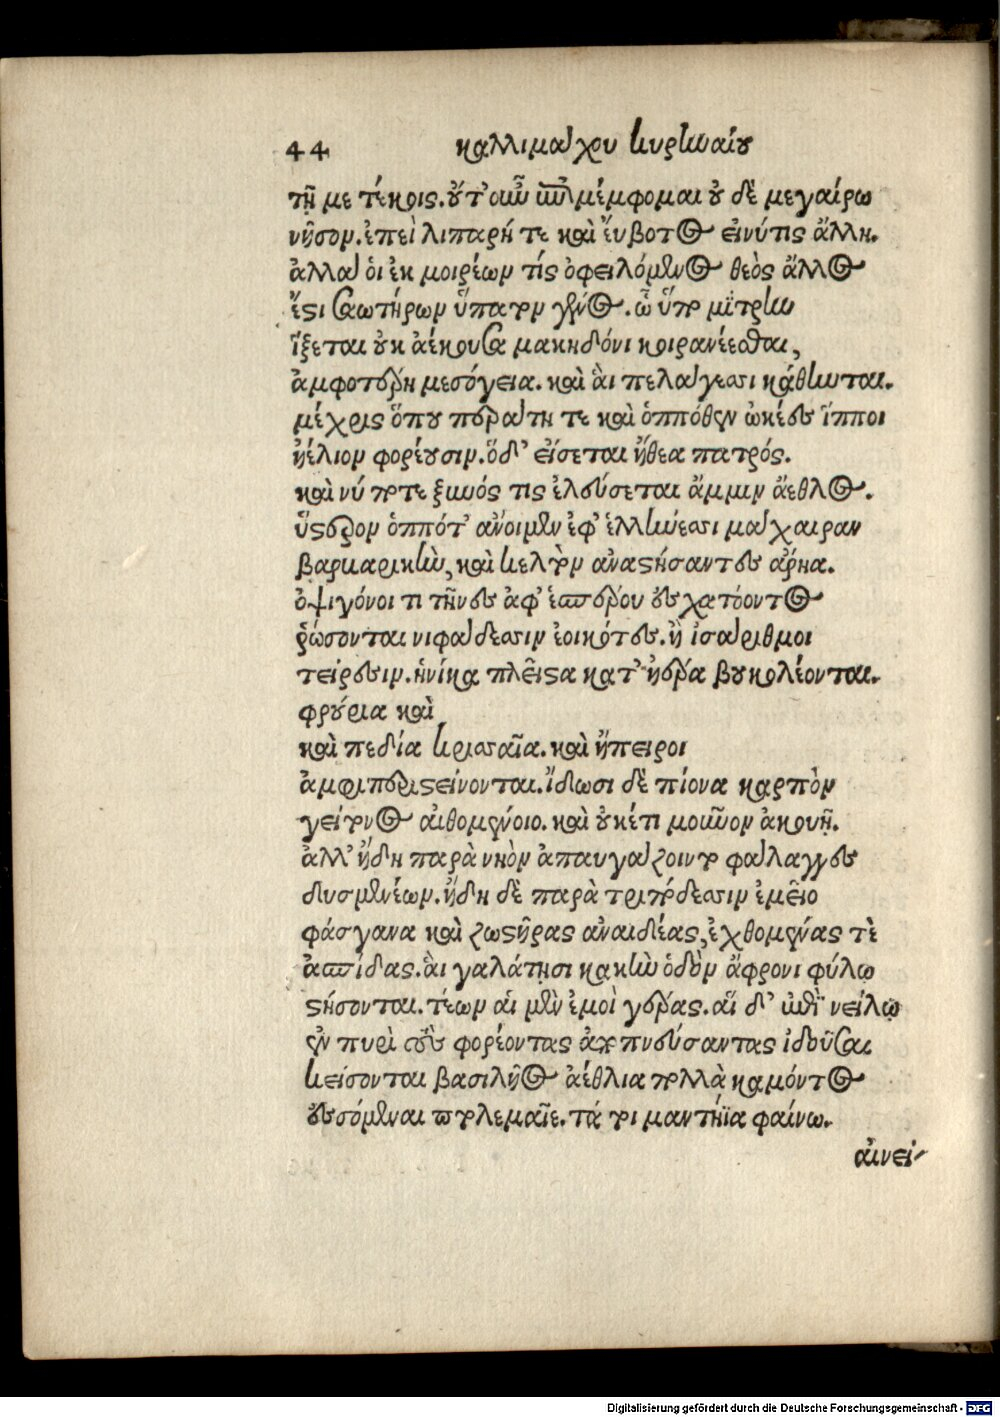 44 καλλιμάχου κυρηναίου
τῇ με τέκοις. οὔτ' οὖν ἐπιμέμφομαι οὐδὲ μεγαίρω
νῆσον. ἐπεὶ λιπαρή τε καὶ εὔβοτος εἰνύτις ἄλλη.
ἀλλά οἱ ἐκ μοιρέων τίς ὀφειλόμενος θεὸς ἄλλος
ἔστι σαωτήρων ὕπατον γένος. ὦ ὕπο μίτρην
ἵξεται οὐκ ἀέκουσα μακηδόνι κοιρανέεσθαι,
ἀμφοτέρη μεσόγεια. καὶ ἃι πελάγεσσι κάθηνται.
μέχρις ὅπου περάτη τε καὶ ὁππόθεν ὠκέες ἵπποι
ἠέλιον φορέουσιν. ὅδ' εἴσεται ἤθεα πατρός.
καὶ νύ ποτε ξυνός τις ἐλεύσεται ἄμμιν ἄεθλος.
ὕστερον ὁππότ' ἄνοι μὲν ἐφ' ἑλλήνεσσι μάχαιραν
βαρβαρικὴν, καὶ κελτὸν ἀναστήσαντες ἄρηα.
ὀψιγόνοι τιτῆνες ἀφ' ἑσπέρου ἐσχατόοντος
ῥώσονται νιφάδεσσιν ἐοικότες. ἢ ἰσάριθμοι
τείρεσιν. ἡνίκα πλεῖστα κατ' ἠέρα βουκολέονται.
φρούρια καὶ
καὶ πεδία κρισσαῖα. καὶ ἤπειροι
ἀμφιπεριστείνονται. ἴδωσι δὲ πίονα καρπὸν
γείτονος αἰθομένοιο. καὶ οὐκέτι μοῦνον ἀκουῇ.
ἀλλ' ἤδη παρὰ νηὸν ἀπαυγάζοιντο φάλαγγες
δυσμενέων. ἤδη δὲ παρὰ τριπόδεσσιν ἐμεῖο
φάσγανα καὶ ζωστῆρας ἀναιδέας, ἐχθομένας τὲ
ἀσπίδας. ἃι γαλάτῃσι κακὴν ὁδὸν ἄφρονι φύλῳ
στήσονται. τέων αἱ μὲν ἐμοὶ γέρας. αἵ δ' ἐπὶ νείλῳ
ἐν πυρὶ τοὺς φορέοντας ἀποπνεύσαντας ἰδοῦσαι
κείσονται βασιλῆος ἀέθλια πολλὰ καμόντος
ἐσσόμεναι πτολεμαῖε. τά τοι μαντήϊα φαίνω.
αἰνεί-
Digitalisierung gefördert durch die Deutsche Forschungsgemeinschaft - DFG